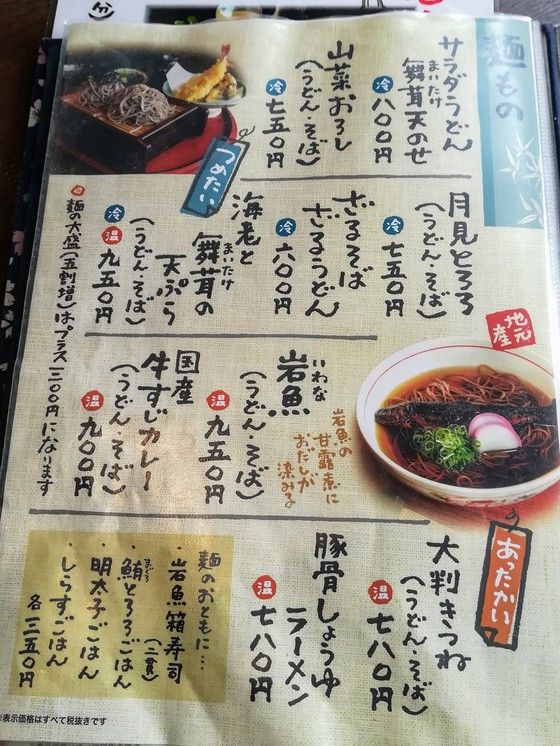 麺もの
サラダうどん
まいたけ
舞茸天のせ
冷 八〇〇円
山菜おろし
(うどん・そば)
冷 七五〇円
つめたい
月見とろろ
(うどん・そば)
冷 七五〇円
ざるそば
ざるうどん
冷 六〇〇円
海老と
まいたけ
舞茸の
天ぷら
(うどん・そば)
冷 温 九五〇円
麺の大盛(五割増)はプラス三〇〇円になります
地元産
いわな
岩魚
(うどん・そば)
温 九五〇円
岩魚の
甘露煮に
おだしが
染みる
国産
牛すじカレー
(うどん・そば)
温 九〇〇円
あったかい
大判きつね
(うどん・そば)
温 七八〇円
豚骨しょうゆ
ラーメン
温 七八〇円
麺のおともに…
・岩魚箱寿司
(二貫)
まぐろ
・鮪とろろごはん
・明太子ごはん
・しらすごはん
各 三五〇円
※表示価格はすべて税抜きです